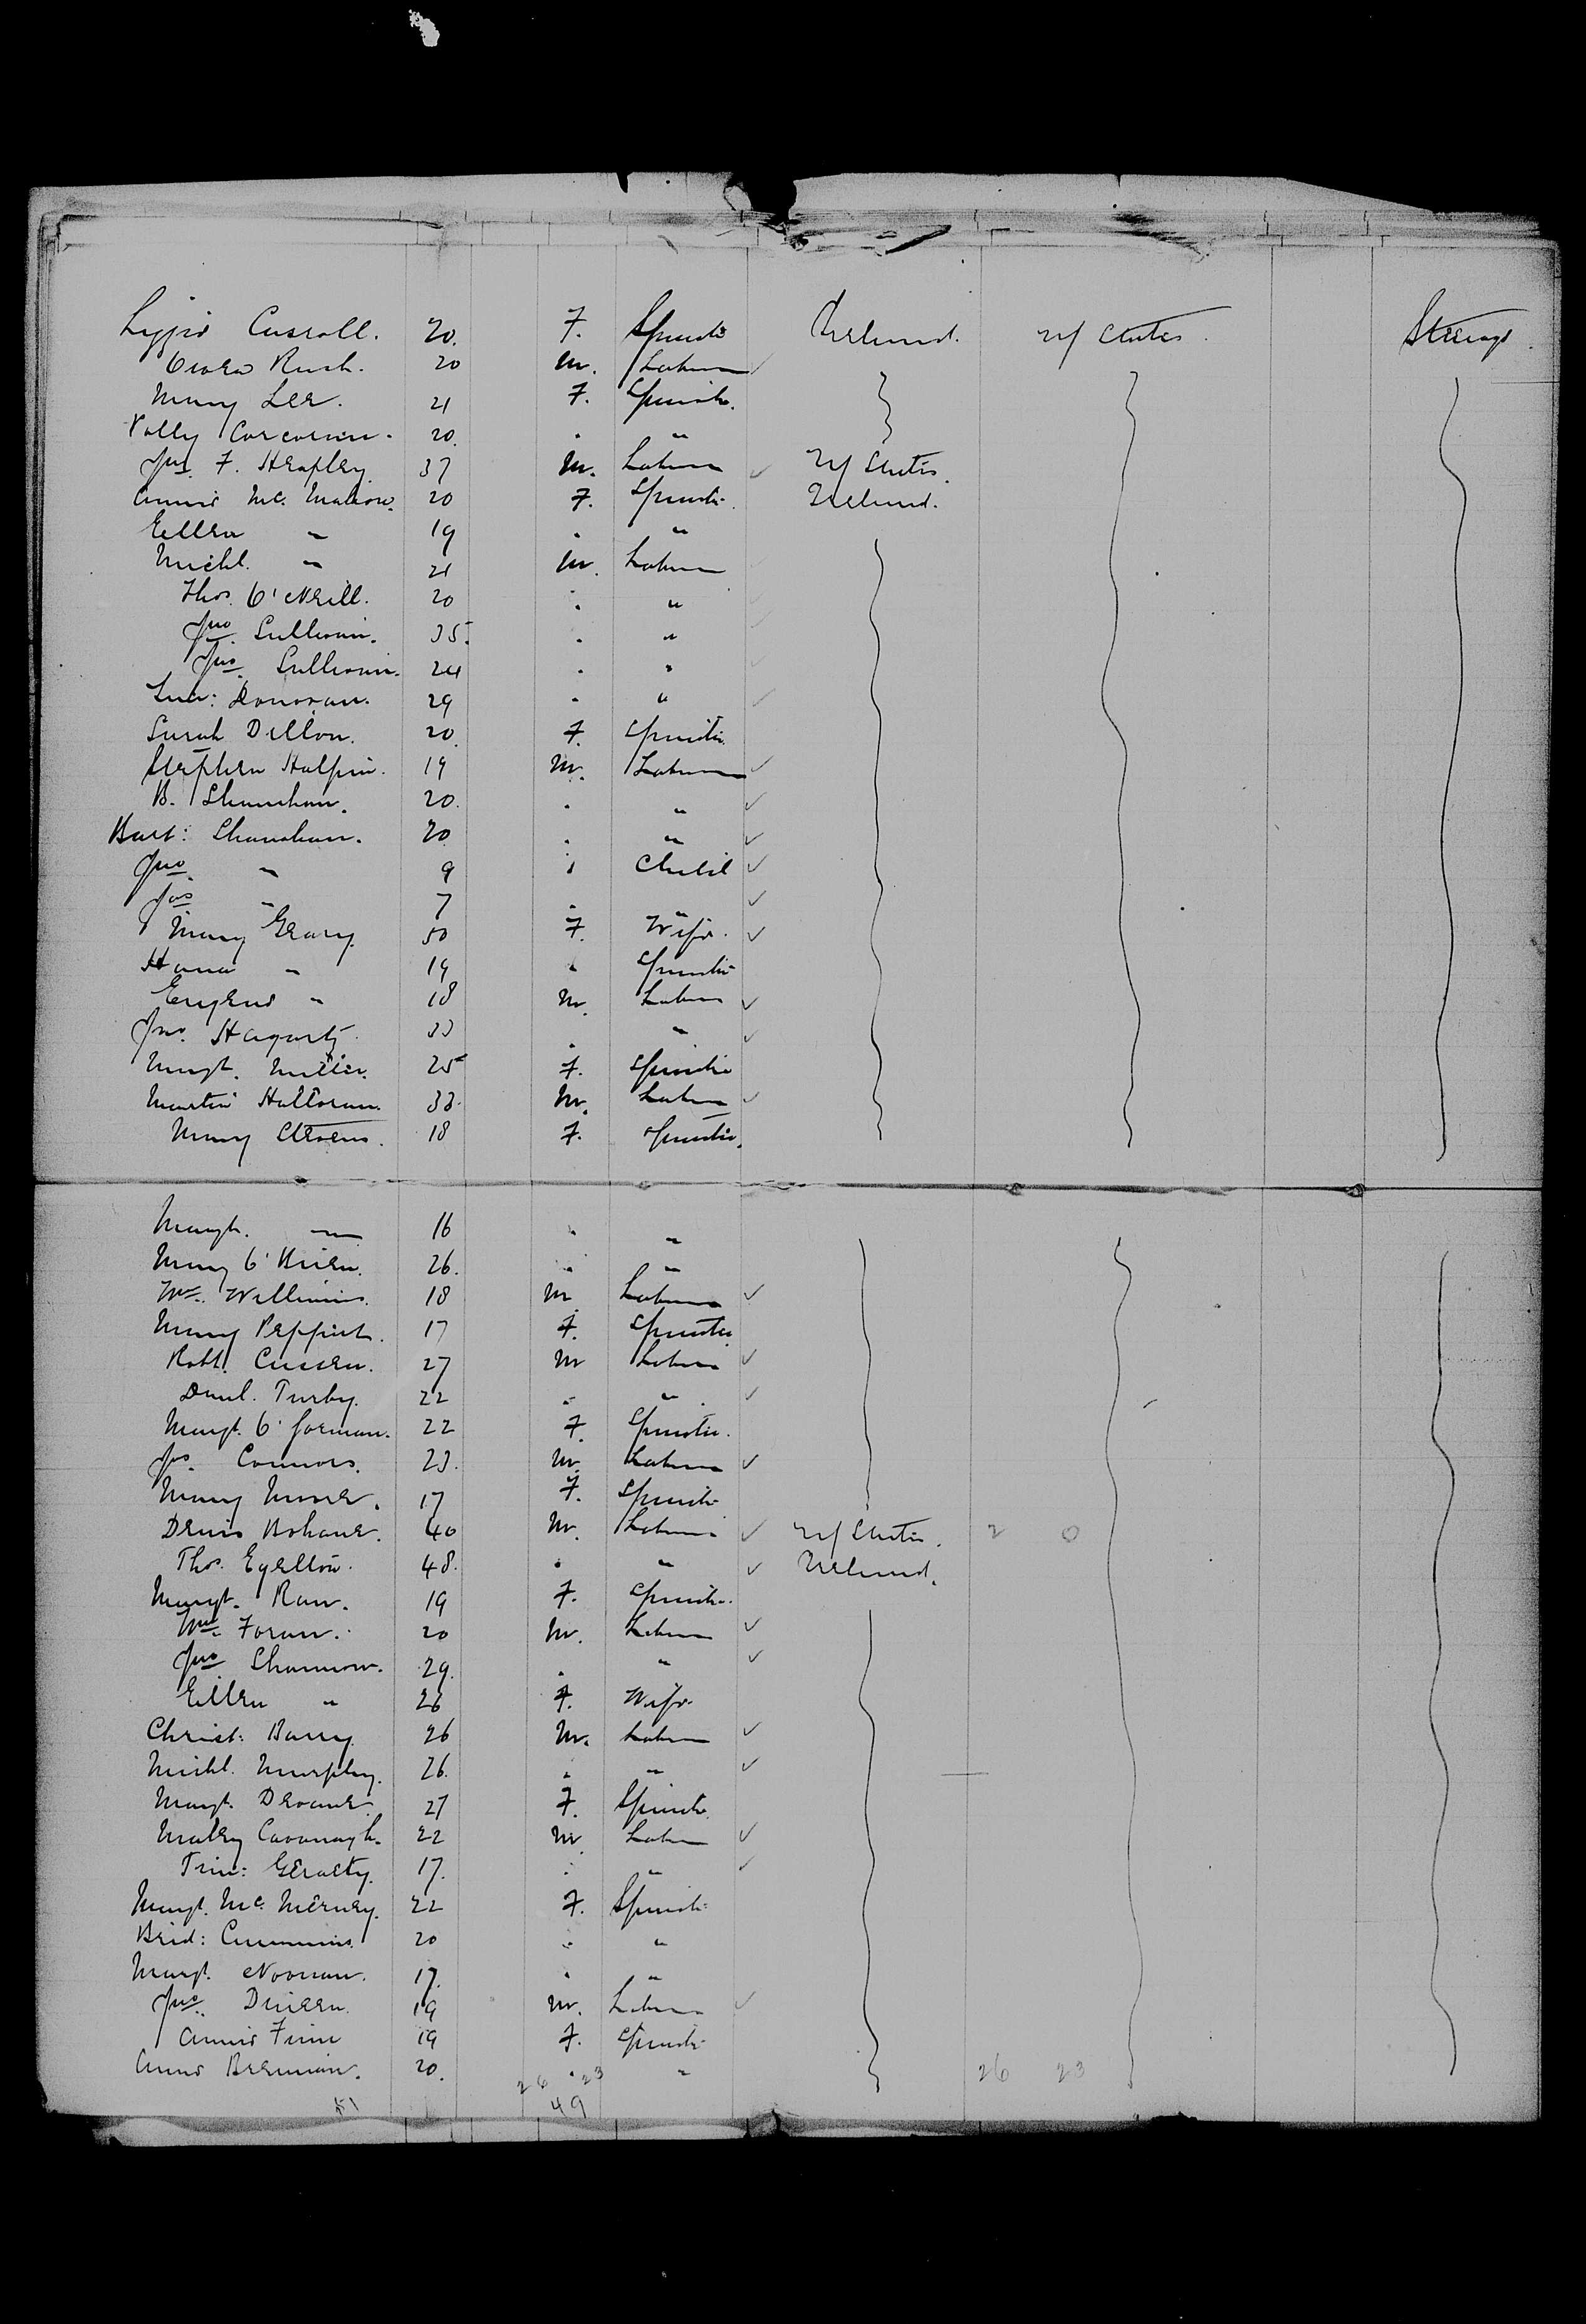 Lizzie Carroll. 20. F. Spinster Ireland. U/States. Steerage.
Owen Rush. 20 M. Laborer
Mary Lee. 21 F. Spinster.
Polly Corcoran. 20. " "
Jas. F. Heapley 37 M. Laborer U/States.
Annie Mc. Mahon. 20 F. Spinster. Ireland.
Ellen " 19 " "
Michl. " 21 M. Laborer
Thos. O'Neill. 20 " "
Jno. Sullivan. 35. " "
Jno. Sullivan. 24 " "
Donovan. 29 " "
Sarah Dillon. 20. F. Spinster.
Stephen Halpin. 19 M. Laborer
B. Shanahan. 20. " "
Bart: Shanahan. 20 " "
Jno. " 9 " Child
Jas " 7 " "
Mary Geary. 50 F. Wife.
Hana " 19 " Spinster
Eugene " 18 M. Laborer
Jno. Hagarty. 33 " "
Margt. Miller. 25 F. Spinster
Martin Halloran. 33. M. Laborer
Mary Stevens. 18 F. Spinster.
Margt. " 16 " "
Mary O'Brien. 26. " "
Wm. Williams. 18 M. Laborer
Mary 17 F. Spinster
Robt. Cussen. 27 M Laborer
Danl. Turby. 22 " "
Margt. O'Gorman. 22 F. Spinster.
Jas. Connors. 23. M. Laborer
Mary Moore. 17 F. Spinster
Denis Bohane. 40 M. Laborer U/States. 2 0
Thos. 48. " " Ireland.
Margt. Raw. 19 F. Spinster.
Wm. Foran. 20 M. Laborer
Jno Shannon. 29. " "
Ellen " 26 F. Wife.
Christ: Barry. 26 M. Laborer
Michl. Murphy. 26. " "
Margt. Devane. 27 F. Spinster.
Cavanagh. 22 M. Laborer
Tim: Geraety. 17. " "
Margt. Mc. Merney. 22 F. Spinster
Brid: Cummins. 20 " "
Margt. Noonan. 17. " "
Jno. Dineen. 19 M. Laborer
Annie Finn 19 F. Spinster
Anne Brennan. 20. " "
26 23 26 23
51 49